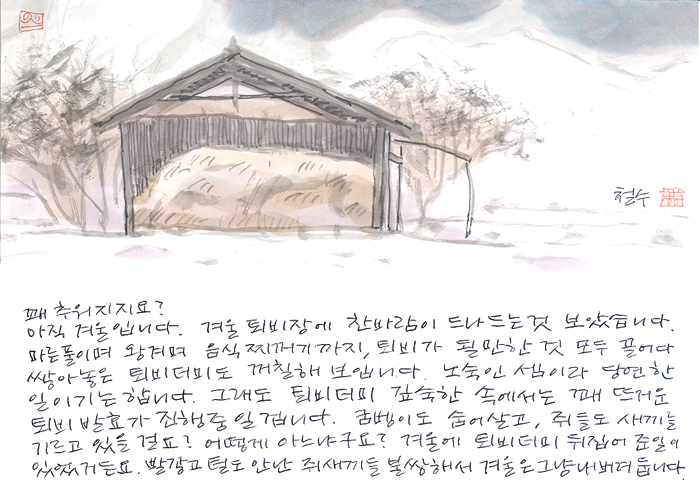 철수
꽤 추워지지요?
아직 겨울입니다. 겨울 퇴비장에 찬바람이 드나드는것 보았습니다.
마른풀이며 왕겨며 음식찌꺼기까지, 퇴비가 될만한 것 모두 끌어다
쌓아놓은 퇴비더미도 꺼칠해 보입니다. 노숙인 셈이라 당연한
일이기는 합니다. 그래도 퇴비더미 깊숙한 속에서는 꽤 뜨거운
퇴비발효가 진행중일겁니다. 굼벵이도 숨어살고, 쥐들도 새끼를
기르고 있을걸요? 어떻게 아느냐구요? 겨울에 퇴비더미 뒤집어 준일이
있었거든요. 빨갛고 털도 안난 쥐새끼들 불쌍해서 겨울은 그냥 내버려 둡니다.